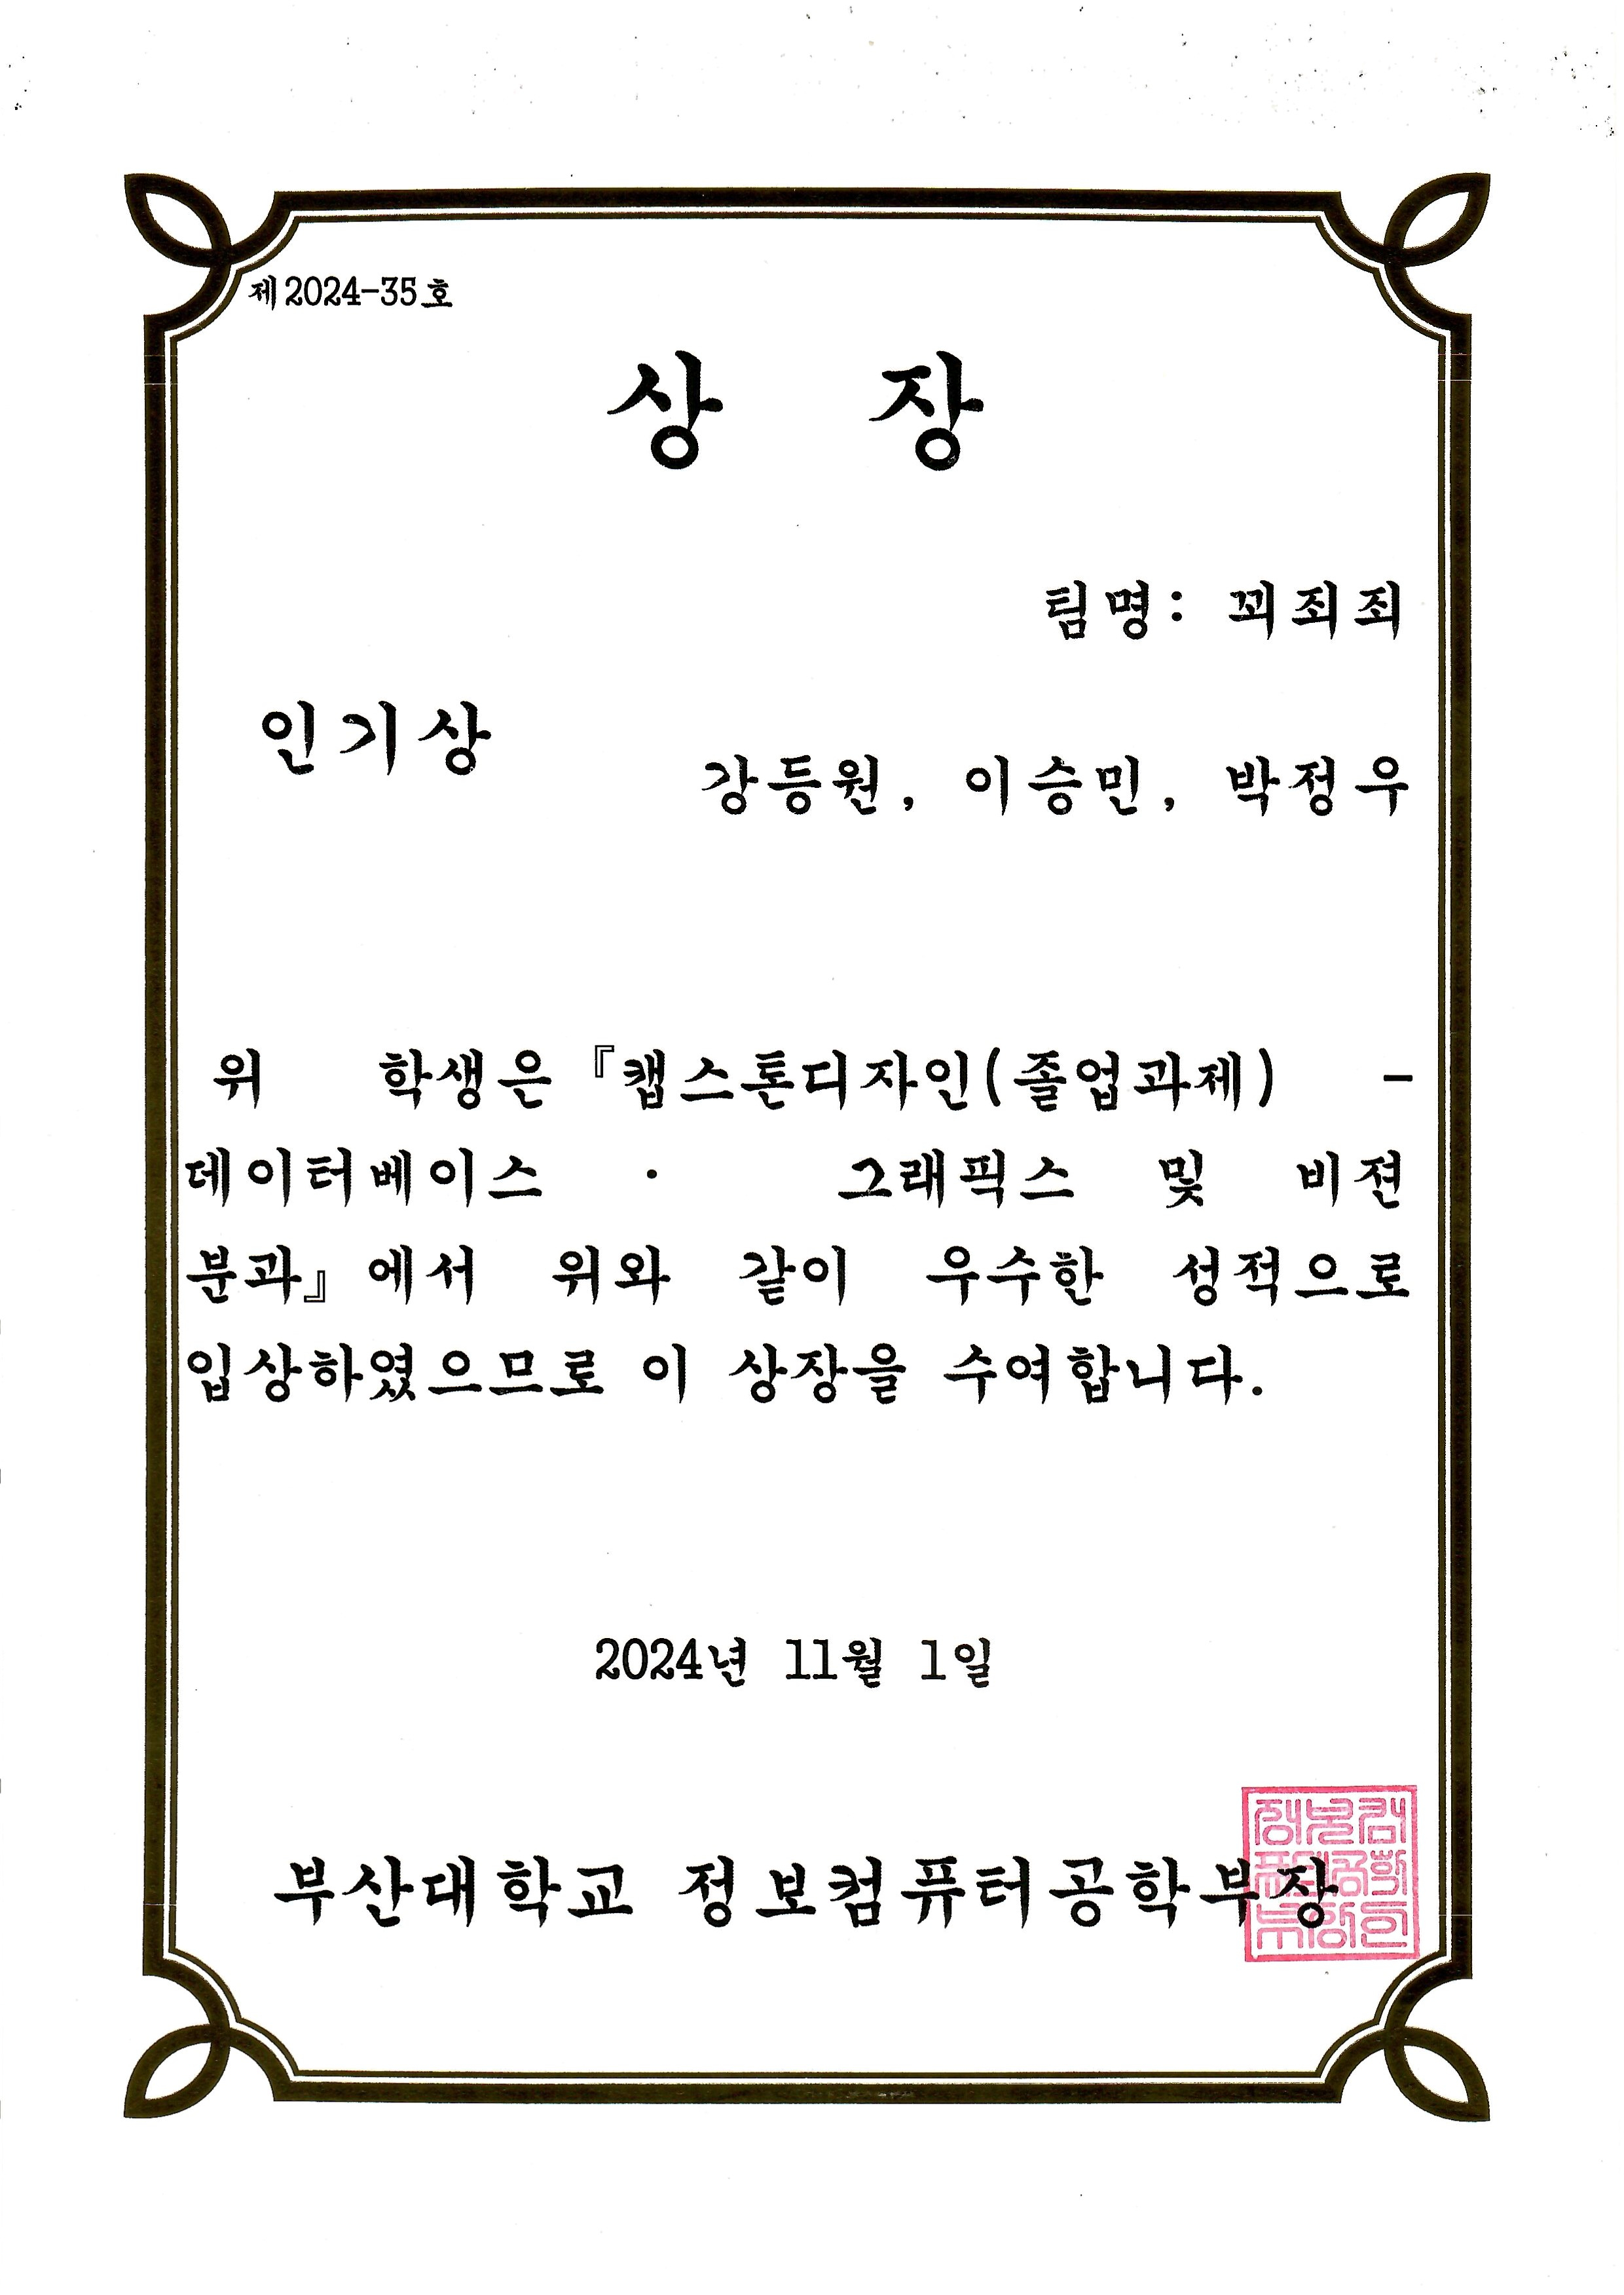 제2024-35호
상 장
팀명: 꾀죄죄
인기상
강등원, 이승민, 박정우
위 학생은『캡스톤디자인(졸업과제) -
데이터베이스 · 그래픽스 및 비젼
분과』에서 위와 같이 우수한 성적으로
입상하였으므로 이 상장을 수여합니다.
2024년 11월 1일
부산대학교 정보컴퓨터공학부장